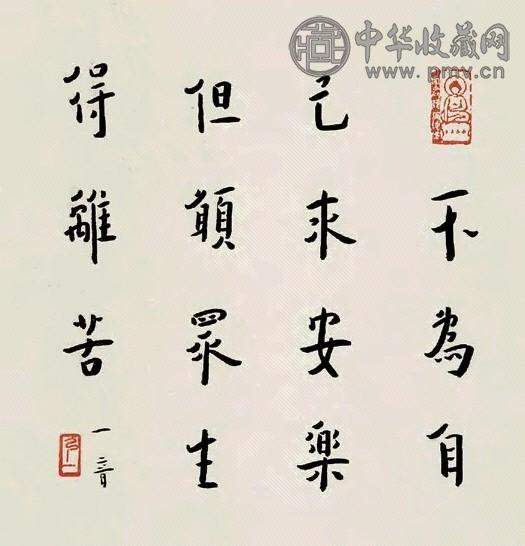 中华收藏网
www.pmv.cn
不為自
己求安樂
但願眾生
得離苦
一音